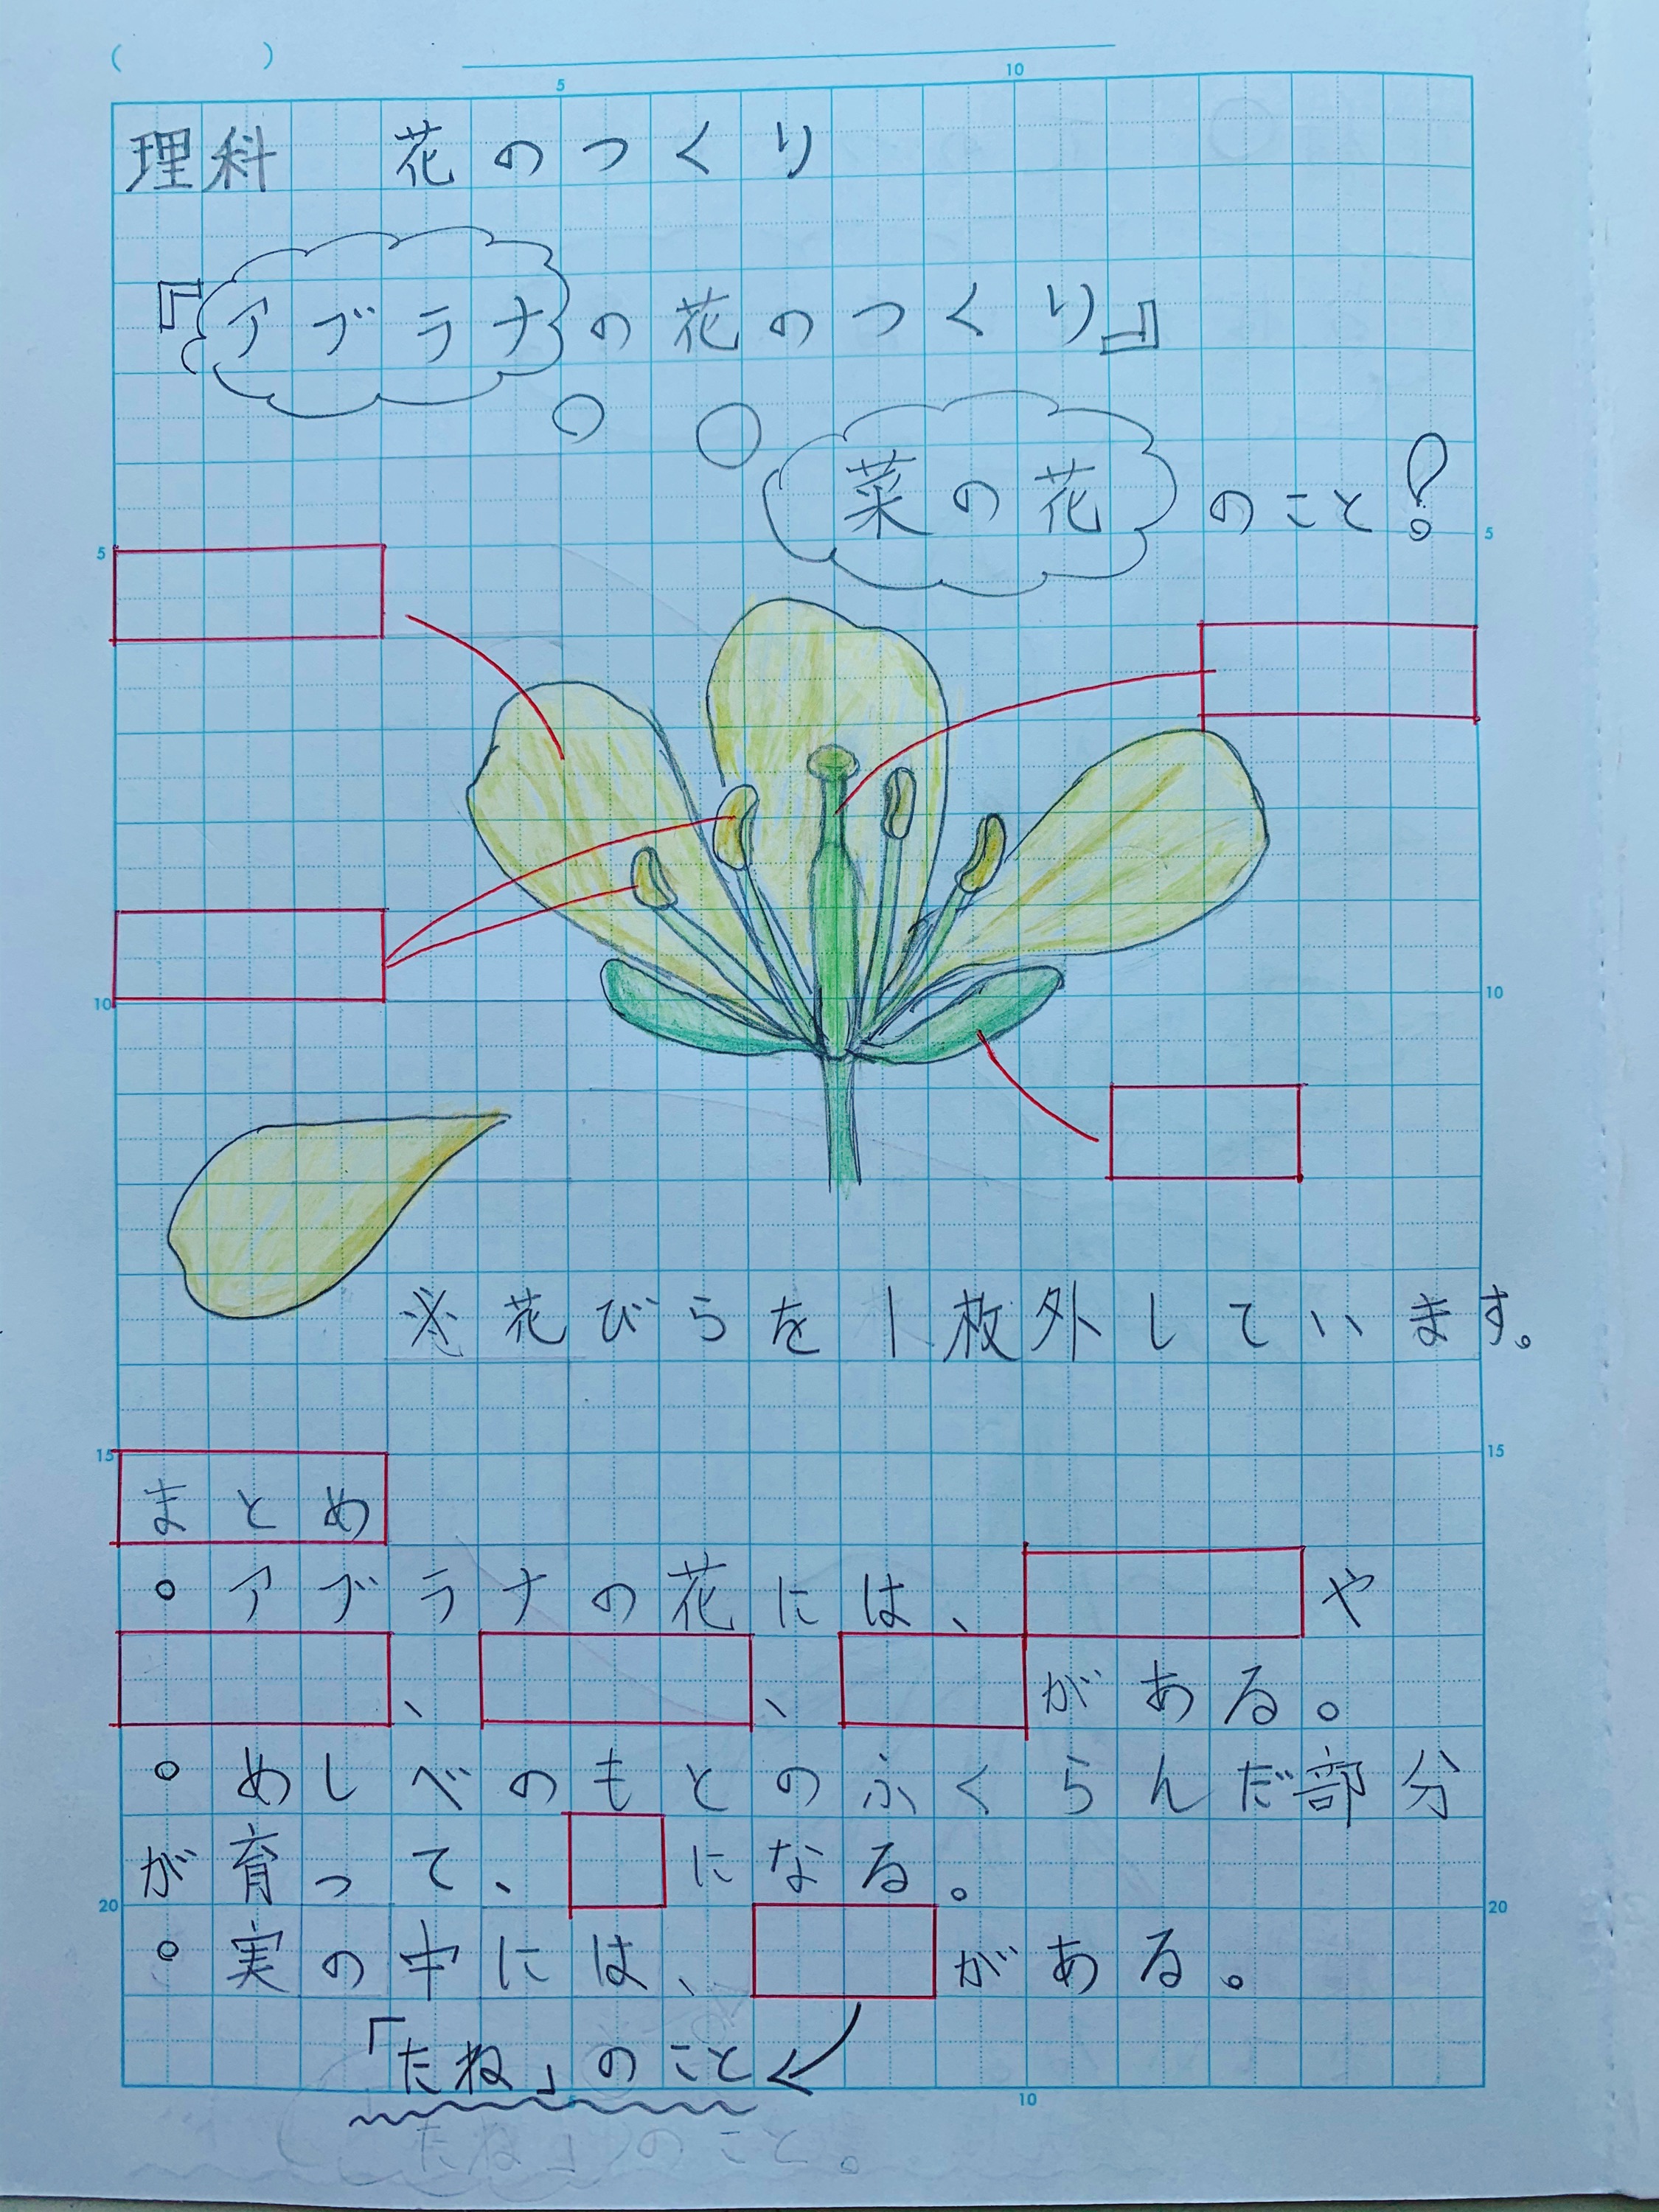 ( )
5 10
理科 花のつくり
『アブラナの花のつくり』
菜の花のこと!
5 5
10 10
※花びらを1枚外しています。
15 15
まとめ
・アブラナの花には、 や
、 、 がある。
・めしべのもとのふくらんだ部分
が育って、 になる。
20 20
・実の中には、 がある。
「たね」のこと
5 10
「たね」のこと。